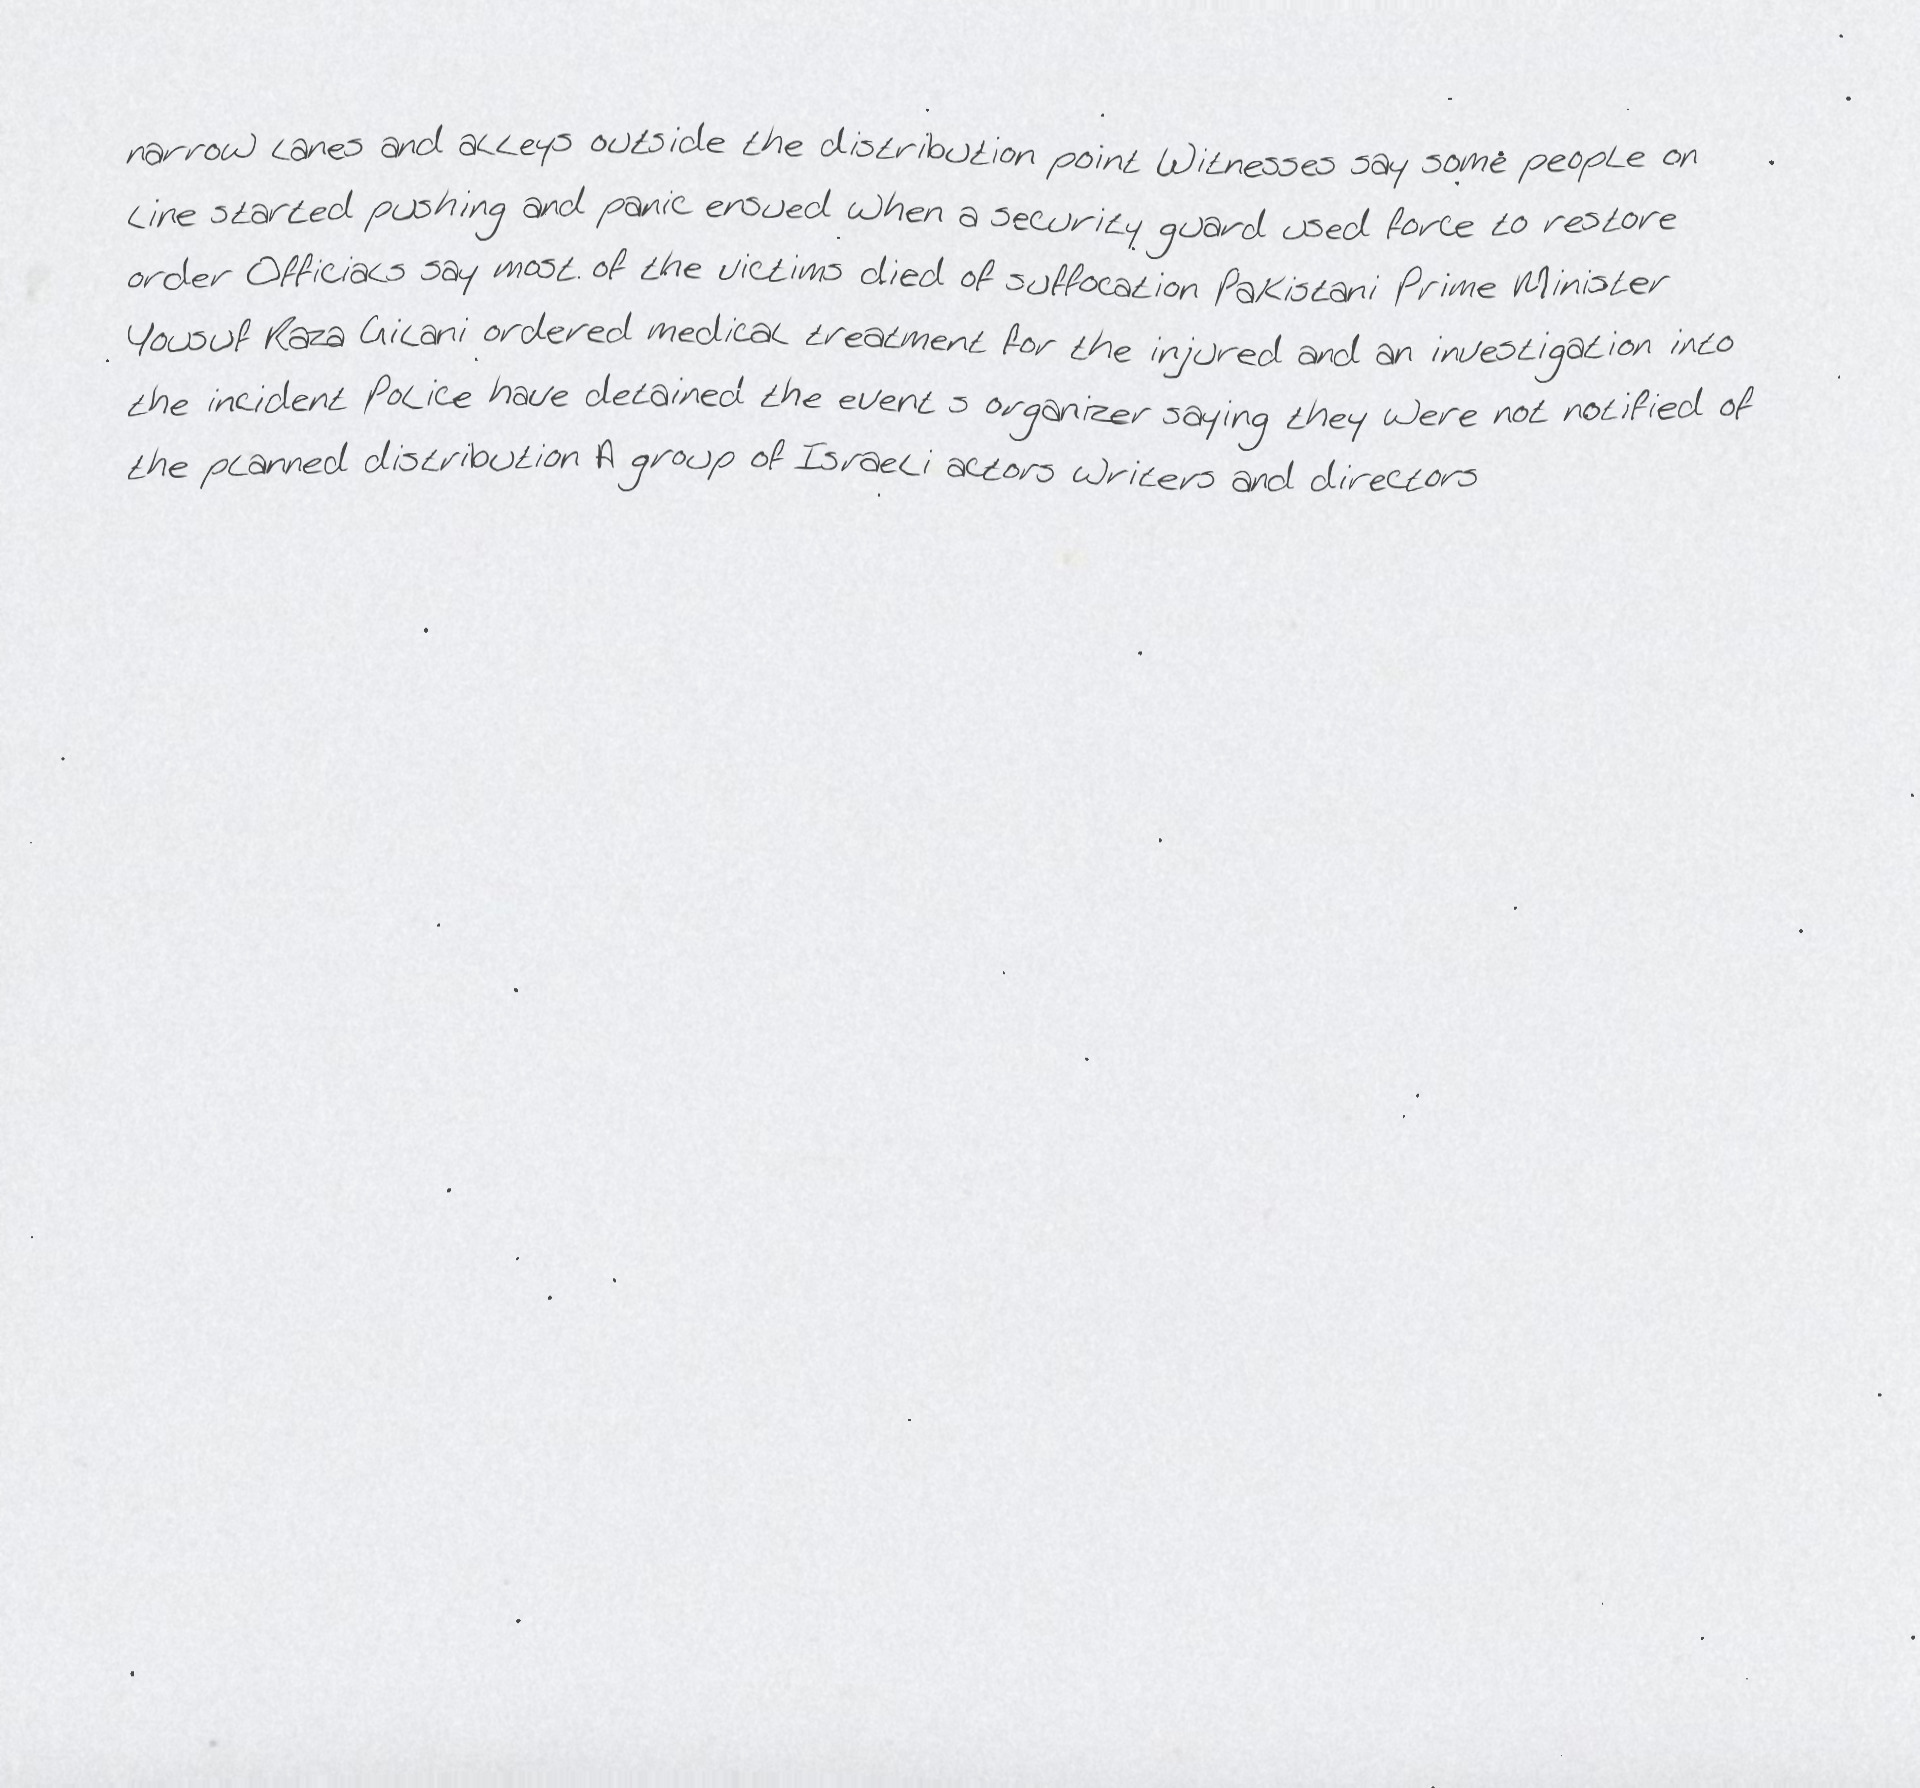 narrow lanes and alleys outside the distribution point Witnesses say some people on
line started pushing and panic ensued when a security guard used force to restore
order Officials say most of the victims died of suffocation Pakistani Prime Minister
Yousuf Raza Gilani ordered medical treatment for the injured and an investigation into
the incident Police have detained the event s organizer saying they were not notified of
the planned distribution A group of Israeli actors writers and directors